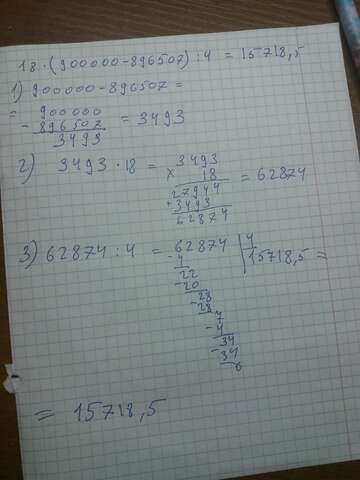 18·(900000-896507):4 = 15718,5
1) 900000-896507=
= 900000
- 896507 = 3493
3493
2) 3493·18 = 3493
x 18
27944 = 62874
+ 3493
62874
3) 62874:4 = 62874 | 4
- 4 15718,5 =
22
- 20
28
- 28
7
- 4
34
- 34
0
= 15718,5